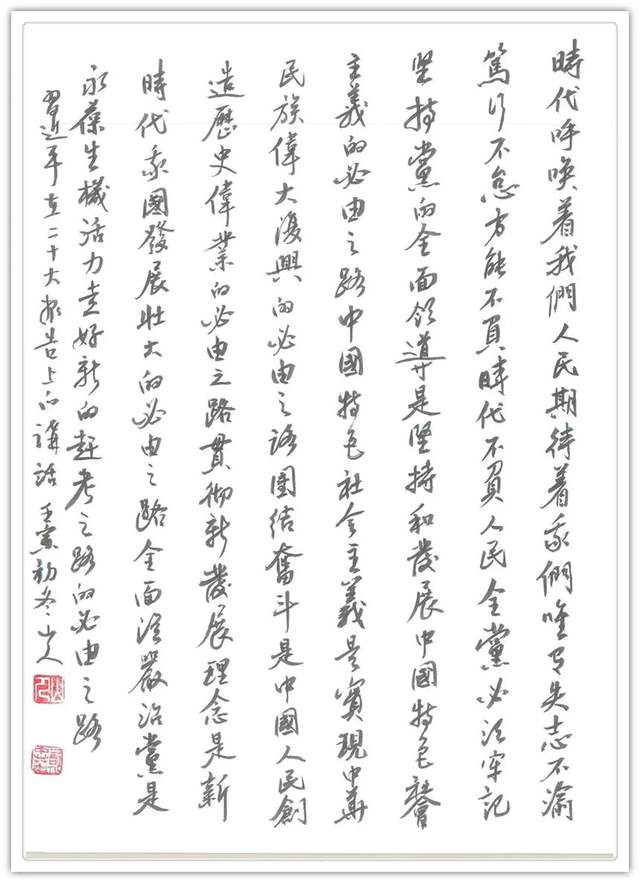 時代呼喚着我們人民期待着我們唯有矢志不渝
篤行不怠方能不負時代不負人民全黨必須牢記
堅持黨的全面領導是堅持和發展中國特色社會
主義的必由之路中國特色社会主義是實現中華
民族偉大復興的必由之路團結奮斗是中國人民創
造歷史偉業的必由之路貫彻新發展理念是新
時代我國發展壯大的必由之路全面從嚴治黨是
永葆生機活力走好新的趕考之路的必由之路
習近平在二十大報告上的講話 壬寅初冬山人